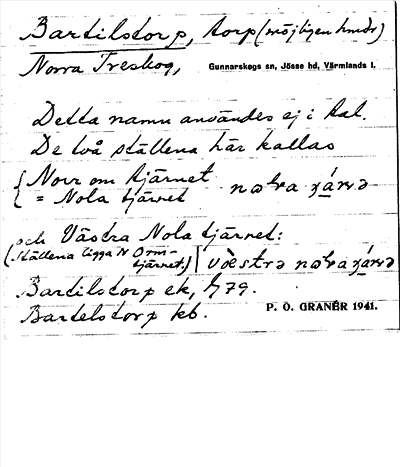 Bartilstorp, torp (möjligen hmdr)
Norra Treskog, Gunnarskogs sn, Jösse hd, Värmlands l.
Detta namn användes ej i tal.
De två ställena här kallas
{ Norr om tjärnet
= Nola tjärnet
och Västra Nola tjärnet:
(Ställena ligga N Orm-
tjärnet.)
Bartilstorp ek, J79.
Bartelstorp kb. P. O. GRANÉR 1941.